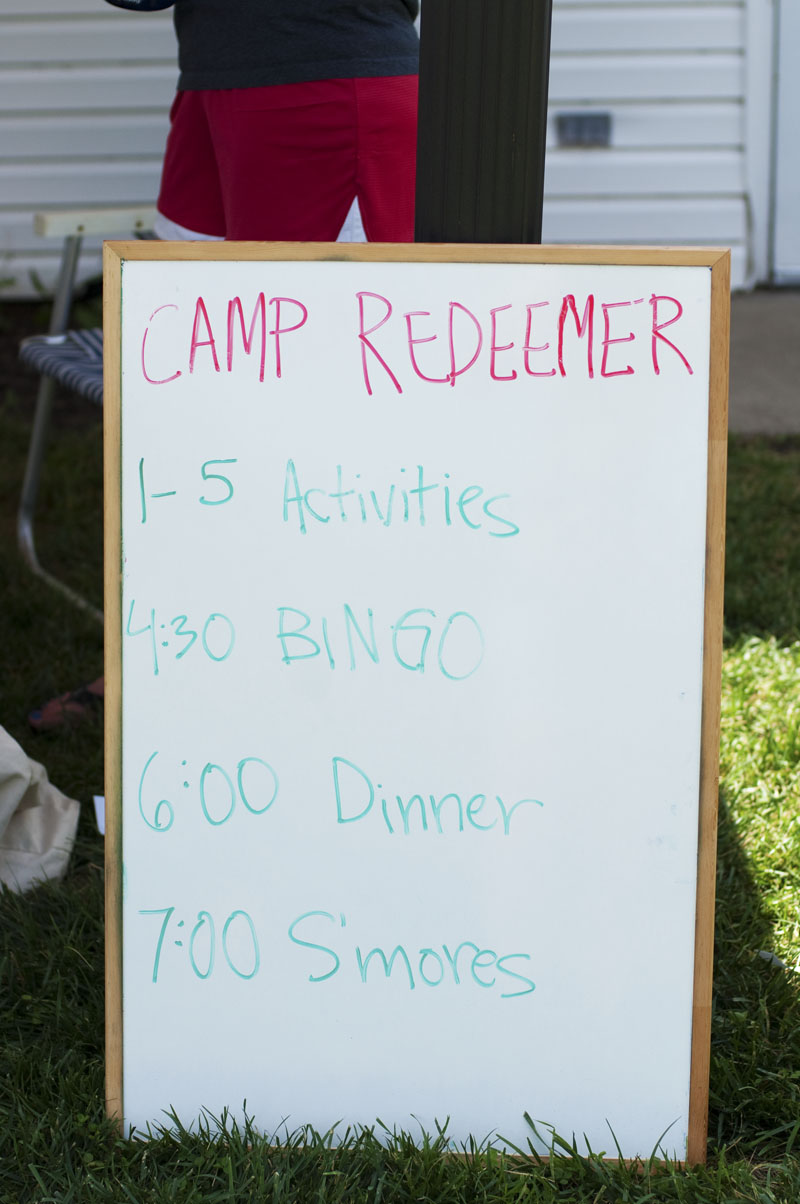 CAMP REDEEMER
1-5 Activities
4:30 BINGO
6:00 Dinner
7:00 S'mores